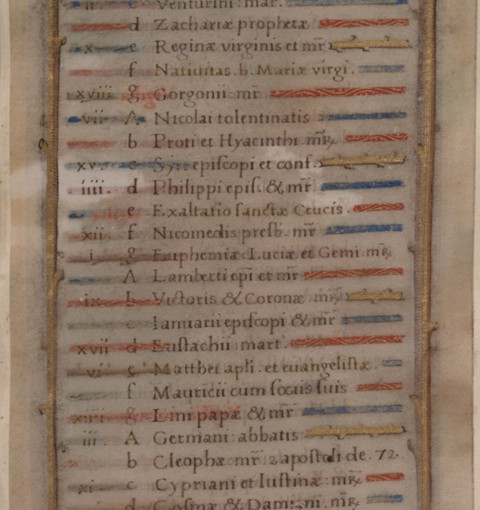 c Venturini mar.
d Zachariæ prophetæ
x e Reginæ virginis et mr̄
f Natiuitas b. Mariæ virgi.
xviii g Gorgonii mr̄
vii A Nicolai tolentinatis
b Proti et Hyacinthi mr̄
xv c episcopi et conf.
iiii. d Philippi epis. & mr̄
e Exaltatio sanctæ Crucis.
xii f Nicomedis presb. mr̄
i g Euphemiæ Luciæ et Gemi mr̄
A Lamberti epi et mr̄
ix b Victoris & Coronæ mr̄
c Ianuarii episcopi & mr̄
xvii d Eustachii mart.
vi e Matthei apli. et euangelistæ.
f Mauricii cum sociis suis
xiiii g Lini papæ & mr̄
iii. A Germani abbatis
b Cleophæ mr̄. apostoli de. 72.
xi c Cypriani et Iustinæ mr̄
d & Damiani. mr̄